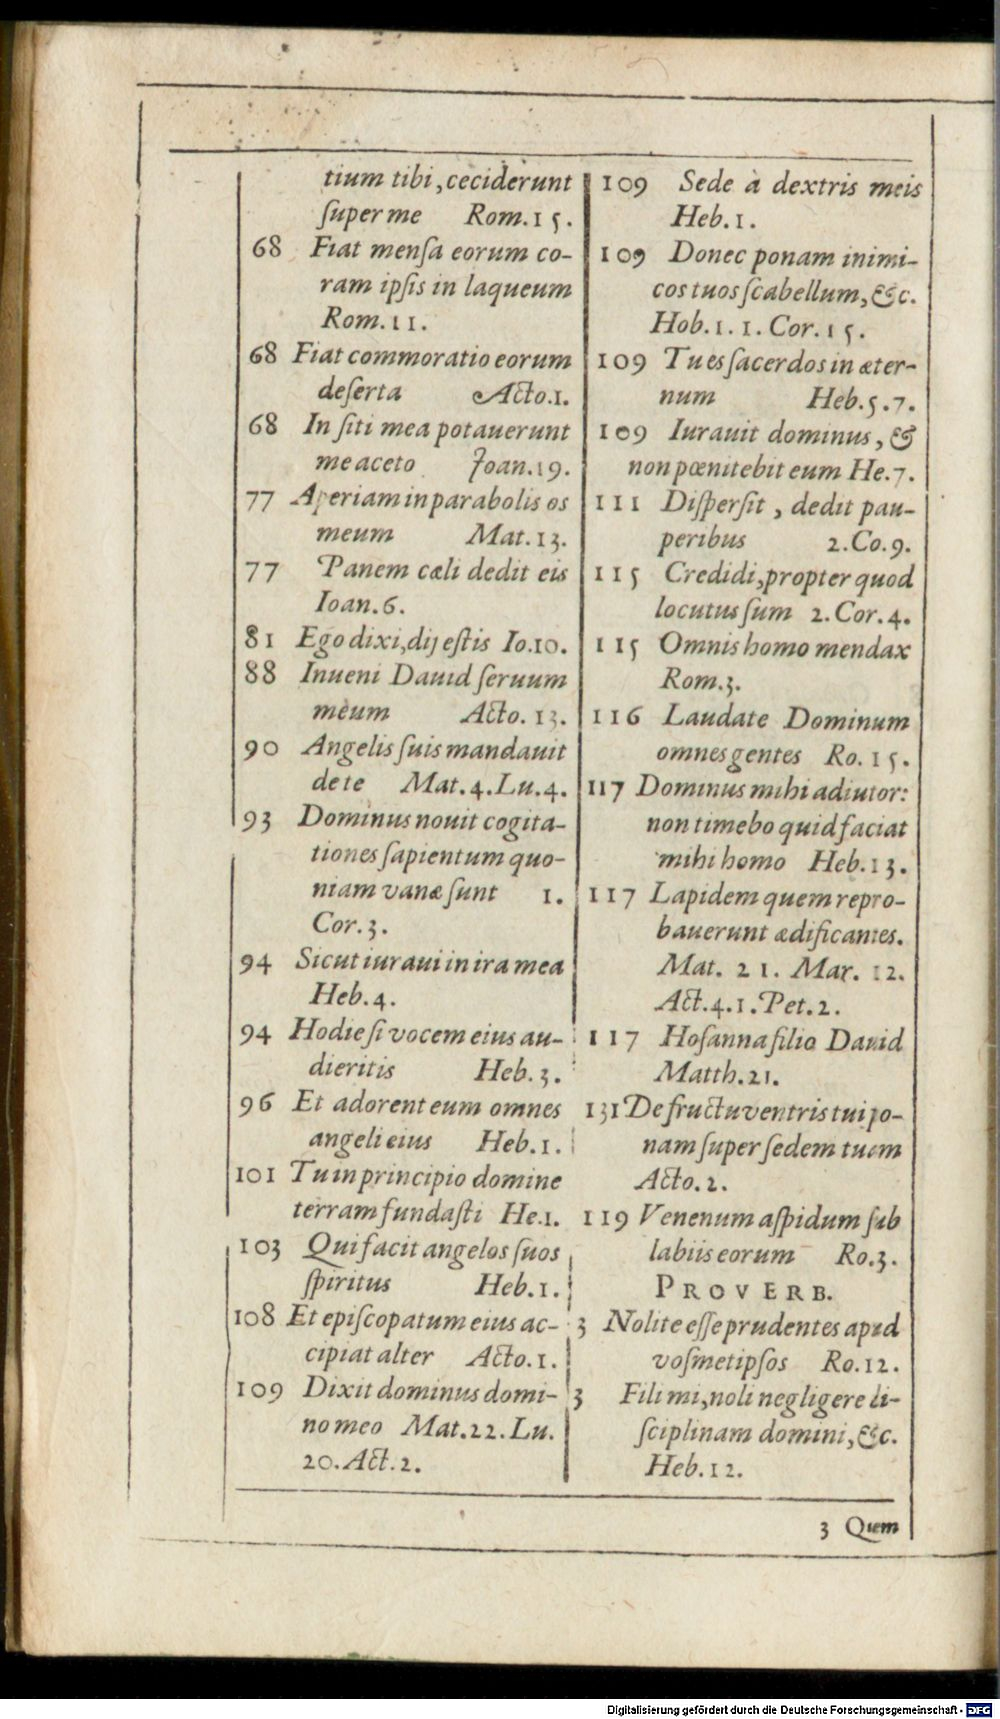 tium tibi, ceciderunt
ſuper me Rom.15.
68 Fiat menſa eorum co-
ram ipſis in laqueum
Rom.11.
68 Fiat commoratio eorum
deſerta Acto.1.
68 In ſiti mea potauerunt
me aceto Joan.19.
77 Aperiam in parabolis os
meum Mat.13.
77 Panem cæli dedit eis
Ioan.6.
81 Ego dixi, dij eſtis Io.10.
88 Inueni Dauid ſeruum
meum Acto. 13.
90 Angelis ſuis mandauit
de te Mat.4.Lu.4.
93 Dominus nouit cogita-
tiones ſapientum quo-
niam vanæ ſunt 1.
Cor.3.
94 Sicut iuraui in ira mea
Heb.4.
94 Hodie ſi vocem eius au-
dieritis Heb.3.
96 Et adorent eum omnes
angeli eius Heb.1.
101 Tu in principio domine
terram fundaſti He.1.
103 Qui facit angelos ſuos
ſpiritus Heb.1.
108 Et epiſcopatum eius ac-
cipiat alter Acto.1.
109 Dixit dominus domi-
no meo Mat.22.Lu.
20.Act.2.
109 Sede à dextris meis
Heb.1.
109 Donec ponam inimi-
cos tuos ſcabellum, &c.
Hob.1. 1. Cor.15.
109 Tu es ſacerdos in æter-
num Heb.5.7.
109 Iurauit dominus, &
non pœnitebit eum He.7.
111 Diſperſit, dedit pau-
peribus 2.Co.9.
115 Credidi, propter quod
locutus ſum 2.Cor.4.
115 Omnis homo mendax
Rom.3.
116 Laudate Dominum
omnes gentes Ro.15.
117 Dominus mihi adiutor:
non timebo quid faciat
mihi homo Heb.13.
117 Lapidem quem repro-
bauerunt ædificantes.
Mat. 21. Mar. 12.
Act.4.1.Pet.2.
117 Hoſanna filio Dauid
Matth.21.
131 De fructu ventris tui po-
nam ſuper ſedem tuam
Acto.2.
119 Venenum aſpidum ſub
labiis eorum Ro.3.
PROVERB.
3 Nolite eſſe prudentes apud
voſmetipſos Ro.12.
3 Fili mi, noli negligere di-
ſciplinam domini, &c.
Heb.12.
3 Quem
Digitalisierung gefördert durch die Deutsche Forschungsgemeinschaft - DFG